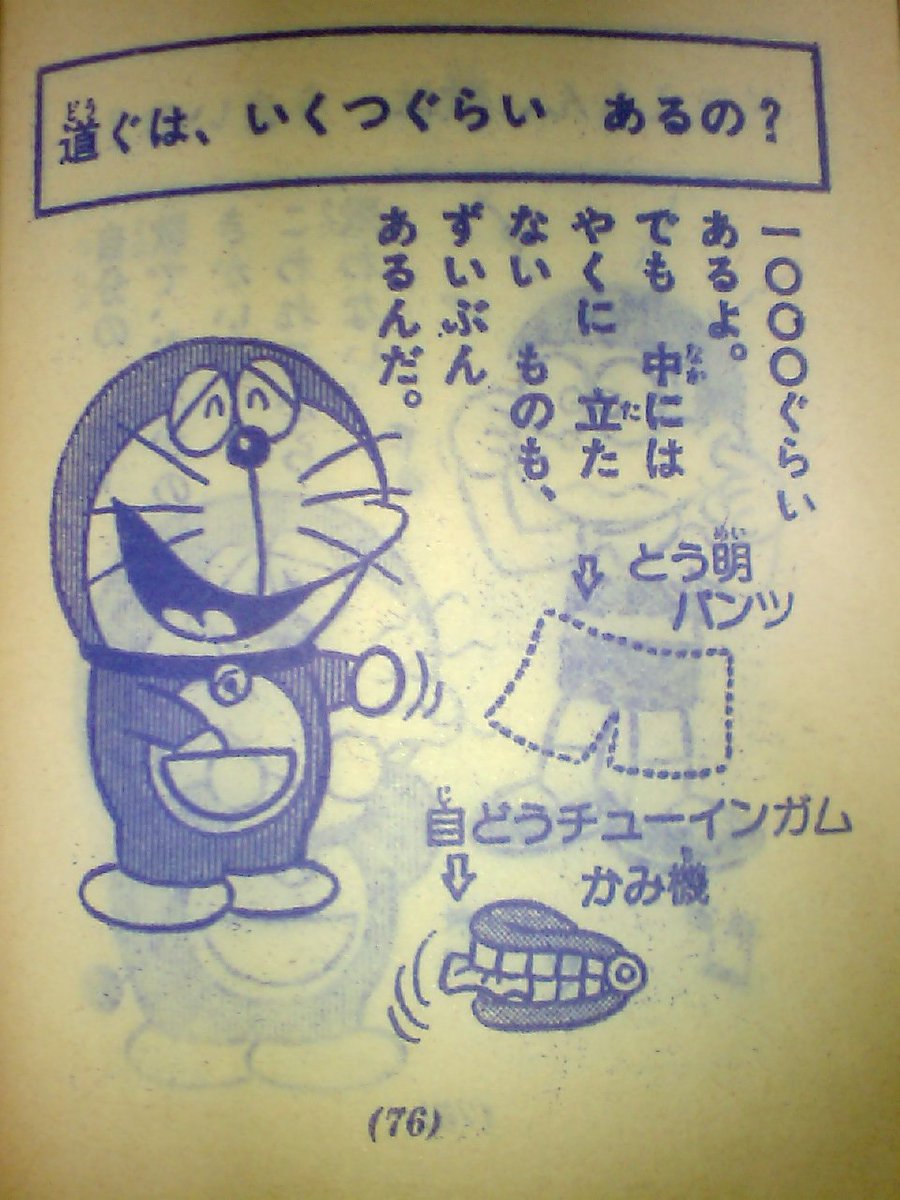 道ぐは、いくつぐらい　あるの？
一〇〇〇ぐらい
あるよ。
でも　中には
やくに　立た
ない　ものも、
ずいぶん
あるんだ。
とう明
パンツ
自どうチューインガム
かみ機
(76)